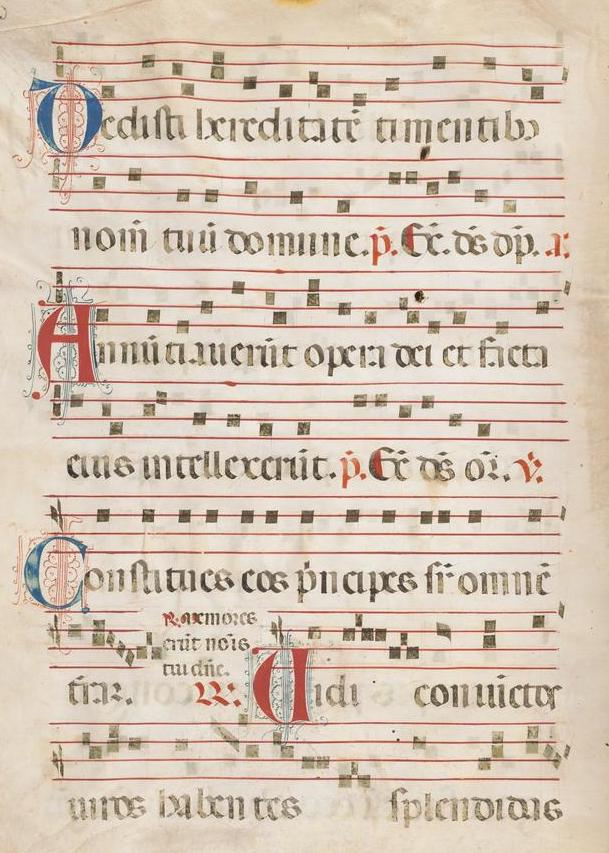 Dedisti hereditatē timentibꝰ
nom̄ tuū domine. p̄. Ex. ds̄ dp̄. a.
Annūtiauerūt opera dei et facta
eius intellexerūt. p̄. Ex ds̄ or̄. v̄.
Constitues eos p̄ncipes sr̄ omnē
R. memores
erūt nōīs
tui dn̄e.
trar̄. R. Vidi coniuctos
uiros habentes splendidas